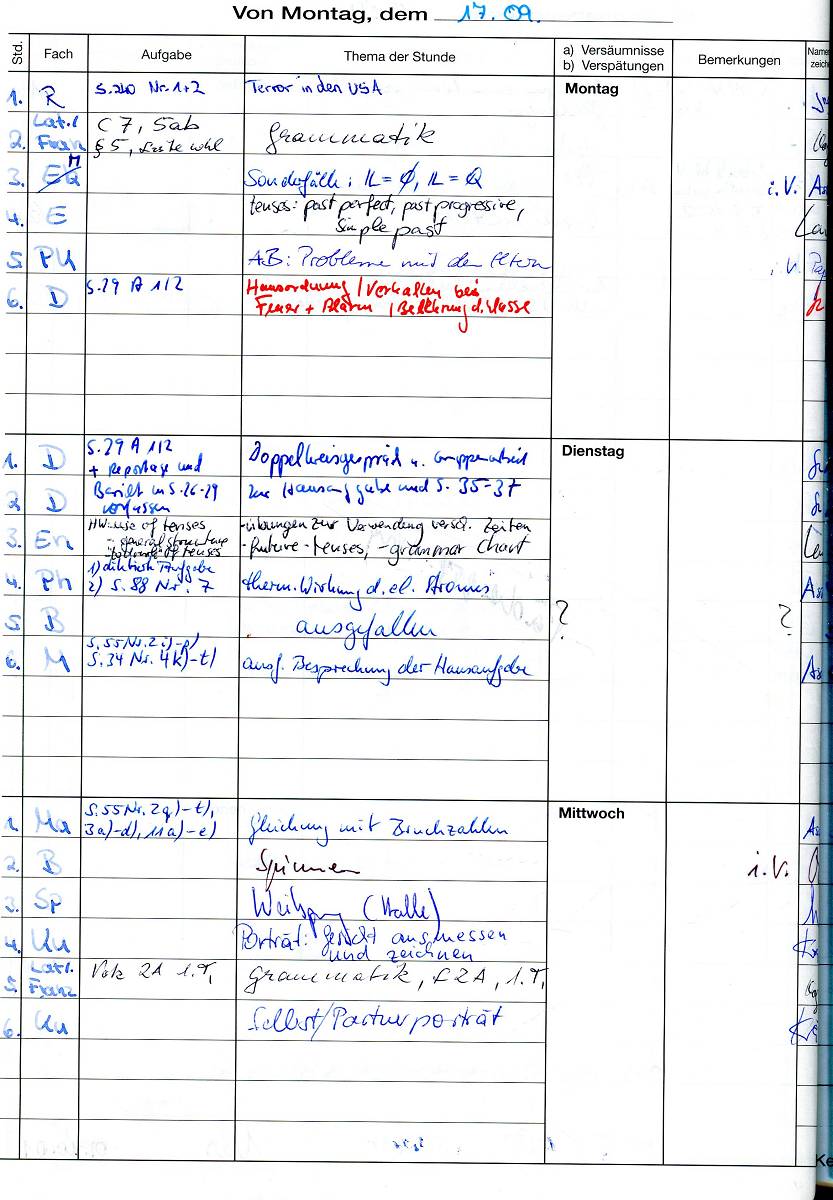 Von Montag, dem 17.09.
Std. Fach Aufgabe Thema der Stunde a) Versäumnisse Bemerkungen
b) Verspätungen
Montag
1. R S. 240 Nr. 1+2 Terror in den USA
Lat. C 7, 5ab
2. Franz § 5, Grammatik
M
3. Sonderfälle: L = ∅, L = Q i.V.
4. E tenses: past perfect, past progressive,
simple past
5. AB: Probleme mit den Eltern i.V.
6. D S. 29 A 1/2 Hausordnung / Verhalten bei
Feuer + Alarm / Belehrung d. Klasse
Dienstag
1. D S. 29 A 1/2
+ Reportage und Doppelkreisgespräch u. Gruppenarbeit
2 D Bericht von S. 26-29 zur Hausaufgabe und S. 35-37
verfassen
3. En HW: use of tenses -Übungen zur Verwendung versch. Zeiten
- general structure -future-tenses, -grammar chart
of tenses
4. Ph 1)
2) S. 88 Nr. 7 therm. Wirkung d. el. Stromes
5. B ausgefallen ? ?
6. M S. 55 Nr. 2 i)-p)
S. 34 Nr. 4k)-t) ausf. Besprechung der Hausaufgabe
Mittwoch
1. Ma S. 55 Nr. 2q)-t),
3a)-d), 11a)-e) Gleichung mit Bruchzahlen
2. B Spinnen i.V.
3. Sp Weitsprung (Halle)
4. Ku Porträt: Gesicht ausmessen
und zeichnen
Lat. Vok 2A 1.T,
5. Franz Grammatik, 2A, 1.T,
6. Ku Selbst/Partnerporträt